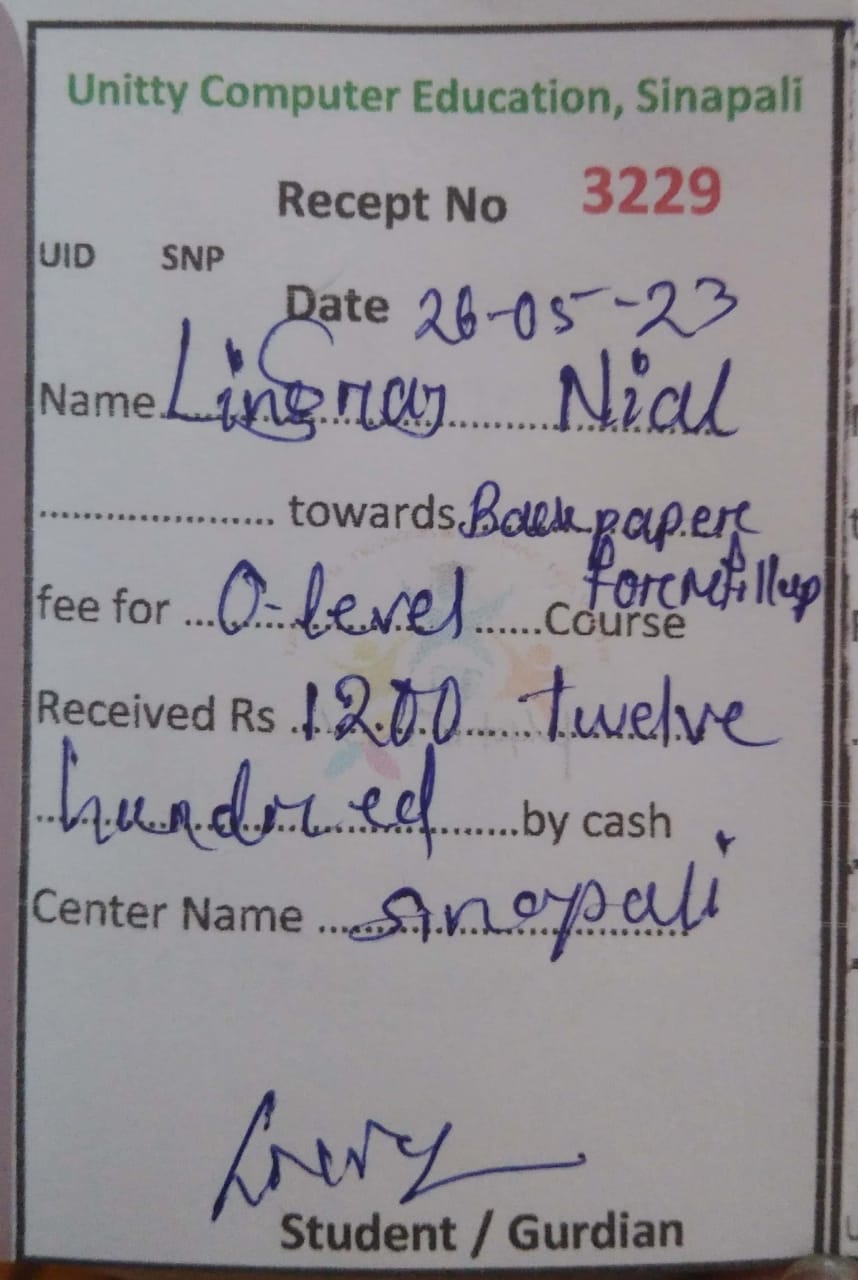 Unitty Computer Education, Sinapali
Recept No 3229
UID SNP
Date 26-05-23
Name Lingraj Nial
towards Back paperc
forcmfillup
fee for O-level Course
Received Rs 1200 twelve
hundred by cash
Center Name Sinapali
Student / Gurdian